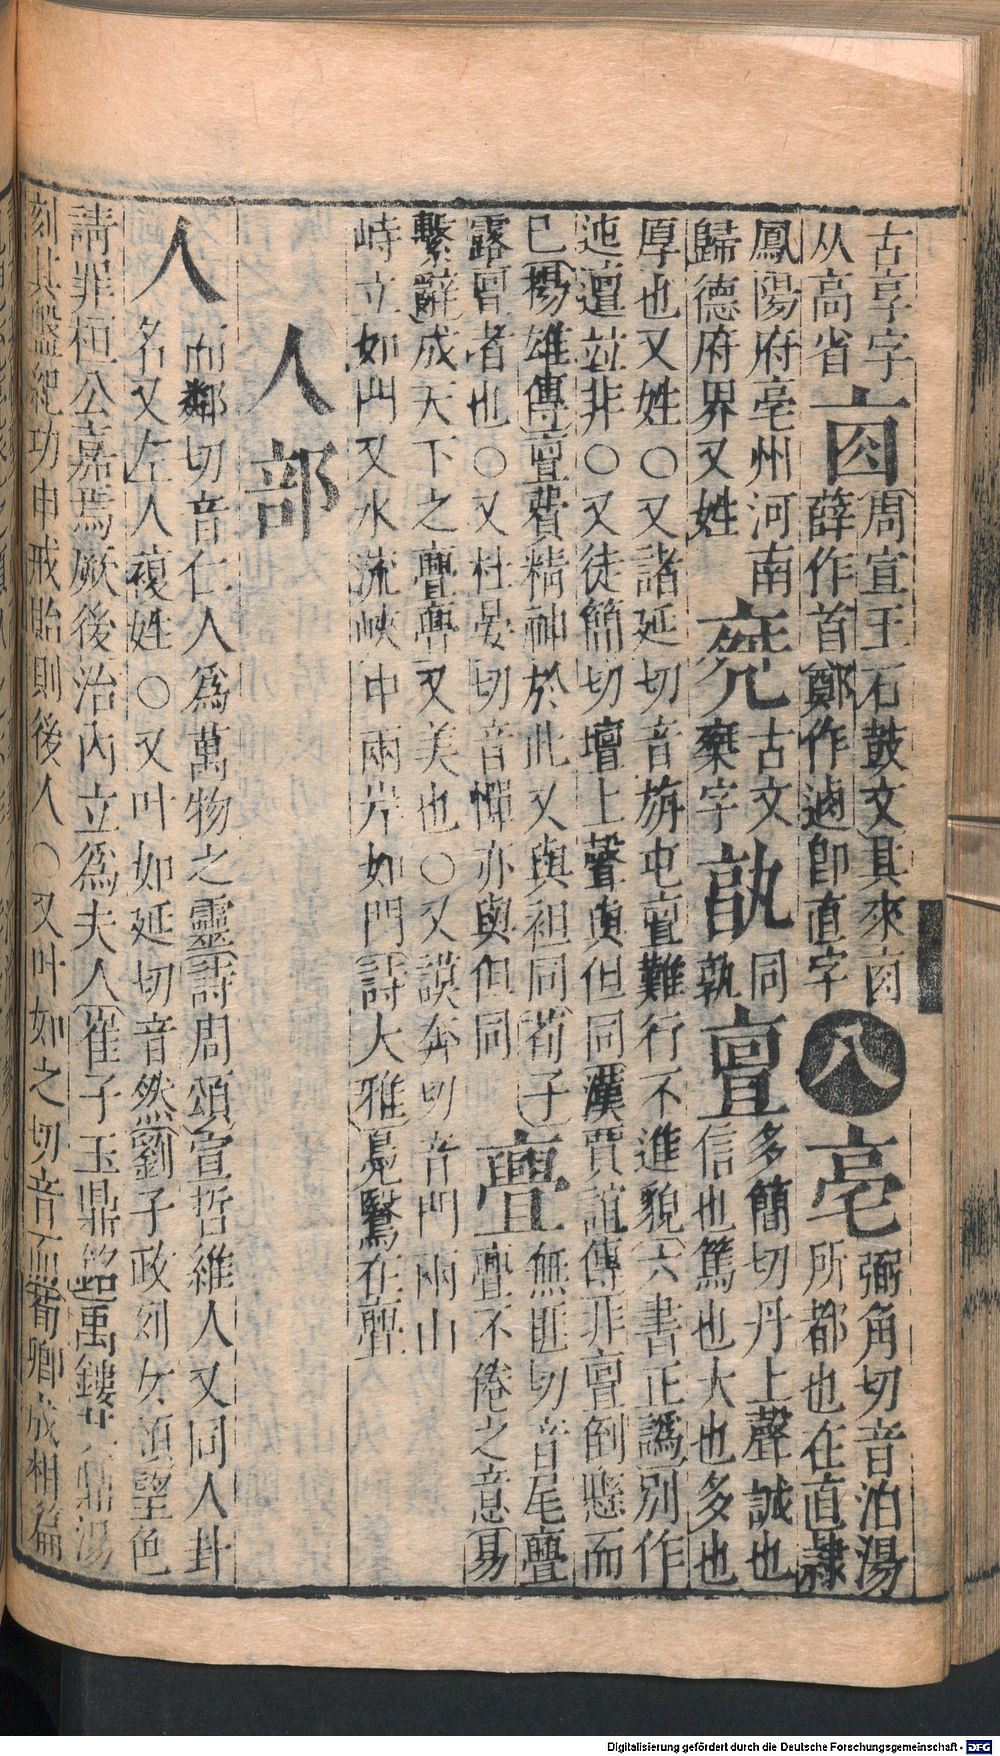 古亨字𠧟周宣王石鼓文其來𠧟
从高省 薛作首鄭作逌卽直字八亳弼角切音泊湯
鳳陽府亳州河南 古文 同 多簡切丹上聲誠也 所都也在直隸
歸德府界又姓 棄字 孰亶信也篤也大也多也
厚也又姓○又諸延切音旃屯亶難行不進貌六書正譌別作
迍邅竝非○又徒簡切壇上聲與但同漢賈誼傳非亶倒懸而
已揚雄傳亶費精神於此又與袒同荀子亹無匪切音尾亹
露亶者也○又杜晏切音憚亦與但同 亹不倦之意易
繫辭成天下之亹亹又美也○又謨奔切音門兩山
峙立如門又水流峽中兩岸如門詩大雅鳧鷖在亹
人部
人而鄰切音仁人爲萬物之靈詩周頌宣哲維人又同人卦
名又左人複姓○又叶如延切音然劉子政列女頌望色
請罪桓公嘉焉厥後治內立爲夫人崔子玉鼎銘禹鏤其鼎湯
刻其盤紀功申戒貽則後人○又叶如之切音而荀卿成相篇
Digitalisierung gefördert durch die Deutsche Forschungsgemeinschaft - DFG